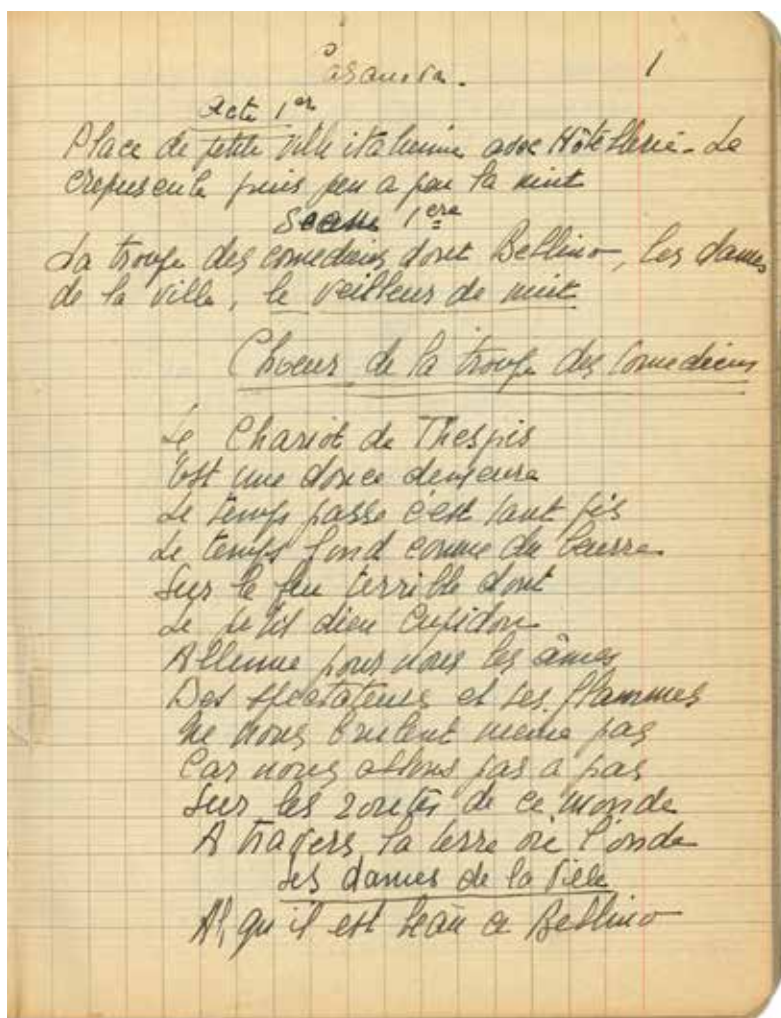 Casanova.
1
Acte 1er
Place de petite ville italienne avec Hôtellerie - Le
crepuscule puis peu a peu la nuit
Scene 1ere
La troupe des comediens dont Bellino, les dames
de la ville, le veilleur de nuit
Choeur de la troupe des Comediens
Le Chariot de Thespis
Est une douce demeure
Le temps passe c'est tant pis
Le temps fond comme du beurre
Sur le feu terrible dont
Le petit dieu Cupidon
Allume pour nous les âmes
Des spectateurs et ses flammes
Ne nous brulent meme pas
Car nous allons pas a pas
Sur les routes de ce monde
A travers la terre où l'onde
Les dames de la Ville
Ah, qu'il est beau ce Bellino